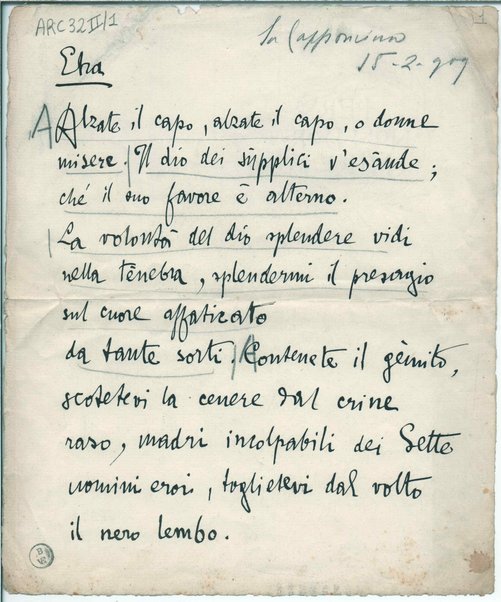 ARC32II/1
1
La Capponcina
15-2-909
Etra
A Alzate il capo, alzate il capo, o donne
misere. Il dio dei sùpplici v'esàude;
ché il suo favore è alterno.
La volontà del dio splendere vidi
nella tènebra, splendermi il presagio
sul cuore affaticato
da tante sorti. Contenete il gèmito,
scotetevi la cenere dal crine
raso, madri incolpabili dei Sette
uomini eroi, toglietevi dal volto
il nero lembo.